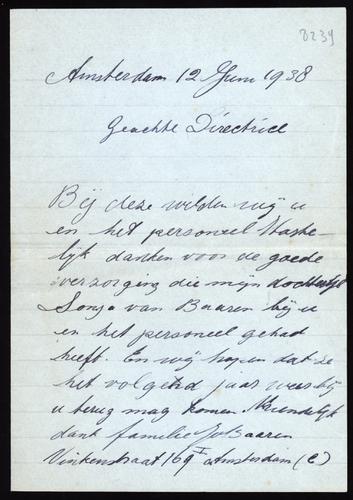 8239
Amsterdam 12 Juni 1938
Geachte Directrice
Bij deze wilden wij u
en het personeel Harte-
lijk danken voor de goede
verzorging die mijn dochtertje
Sonja van Baaren bij u
en het personeel gehad
heeft. En wij hopen dat ze
het volgend jaar weer bij
u terug mag komen. Vriendelijk
dank familie v Baaren
Vinkenstraat 169 I Amsterdam (C)